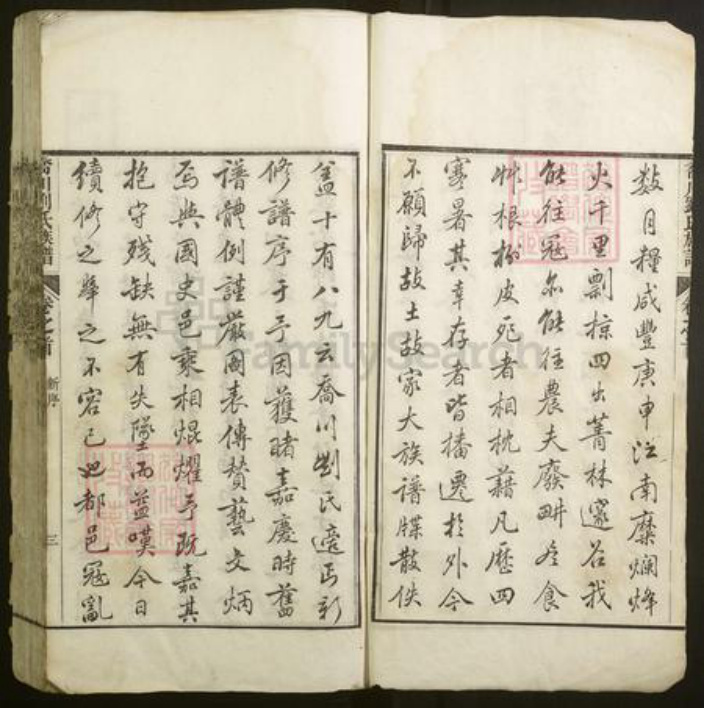 数月糧咸豐庚申江南糜爛烽
火千里剽掠四出菁林邃谷我
能往寇亦能往農夫廢畊虎食
艸根樹皮死者相枕藉凡歷四
寒暑其幸存者皆播遷於外今
不願歸故土故家大族譜牒散佚
盖十有八九云喬川劉氏適丐新
修譜序于予因獲睹嘉慶時舊
譜體例謹嚴圖表傳贊藝文炳
焉與國史邑乘相焜耀予既嘉其
抱守殘缺無有失墜而益嘆今日
續修之舉之不容已也都邑冠亂
喬川劉氏族譜
卷之首
新序
三
FamilySearch